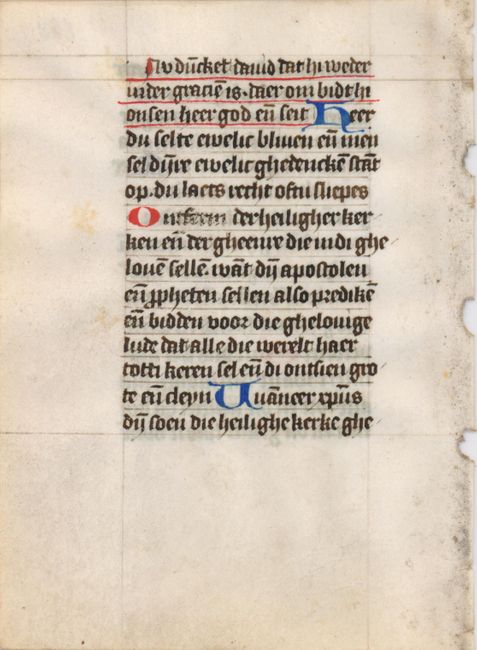 Nv dūcket dauid dat hi weder
in der graciē is. daer om bidt hi
onsen heer god eñ seit Heer
du selte ewelic bliuen eñ men
sel dijnre ewelic ghedenckē stāt
op. du laets recht oftu sliepes
Ontferm der heiligher ker-
ken eñ der gheenre die in di ghe-
louē sellē. wāt dij apostolen
eñ ꝓpheten sellen also predikē
eñ bidden voor die ghelouige
lude dat alle die werelt haer
tot ti keren sel eñ di ontsien gro-
te eñ cleyn Wāneer xp̄us
dij soen die heilighe kerke ghe-